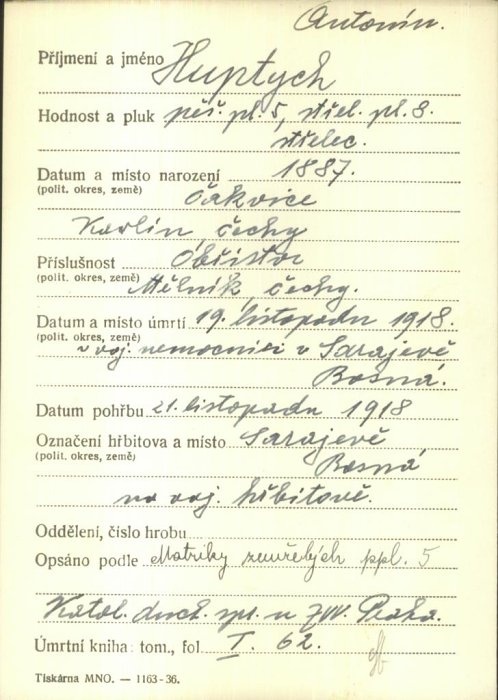 Antonín.
Příjmení a jméno Huptych
Hodnost a pluk pěš. pl. 5, střel. pl. 8.
střelec.
Datum a místo narození 1887.
(polit. okres, země) Čakvice
Karlín, Čechy
Příslušnost Obříství
(polit. okres, země) Mělník, Čechy.
Datum a místo úmrtí 19. listopadu 1918.
(polit. okres, země) v voj. nemocnici v Sarajevě
Bosná.
Datum pohřbu 21. listopadu 1918
Označení hřbitova a místo Sarajevě
(polit. okres, země) Bosná
na voj. hřbitově.
Oddělení, číslo hrobu
Opsáno podle Matriky zemřelých ppl. 5
Katol. duch. spr. u ZVV. Praha.
Úmrtní kniha: tom., fol I. 62.
Tiskárna MNO. — 1163-36.